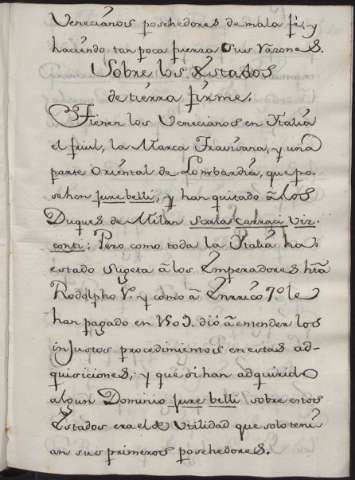 Venecianos poshedores de mala fè, y
haciendo tan poca fuerza sus Varones.
Sobre los Estados
de tierra firme.
Tienen los Venecianos en Italia
el friul, la Marca Travisana, y una
parte Oriental de Lombardia, que po-
sehen jure belli, y han quitado à los
Duques de Milan Scala Carraci Viz-
conti: Pero como toda la Italia ha
estado Sugeta à los Emperadores htã
Rodolpho Vº y como à Enrrico 7º le
han pagado en 1509. dió à entender los
injustos procedimientos en estas ad-
quisiciones, y que si han adquirido
algun Dominio jure belli sobre estos
Estados era el de Utilidad que solo teni-
an sus primeros poshedores.